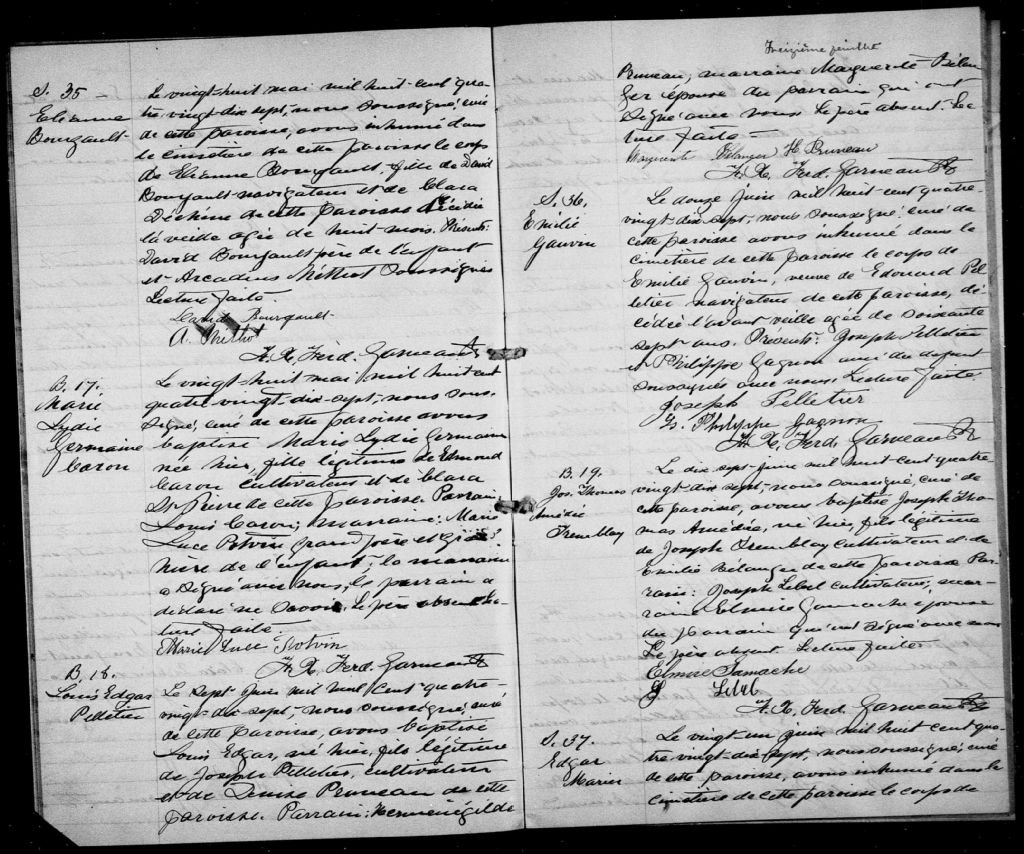 S. 35
Etienne
Bourgault
Le vingt-huit mai mil huit-cent qua-
tre vingt-dix sept, nous soussigné, curé
de cette paroisse, avons inhumé dans
le cimetière de cette paroisse le corps
de Etienne Bourgault, fille de David
Bourgault navigateur et de Clara
de cette paroisse décédée
la veille agée de huit mois. Présents:
David Bourgault père de l'enfant
et Arcadius Methot soussignés
Lecture faite.
David Bourgault
A. Methot
F. X. Ferd. Garneau Ptr
B. 17.
Marie
Lydie
Germaine
Caron
Le vingt-huit mai mil huit cent
quatre vingt-dix-sept, nous sous-
signé, curé de cette paroisse avons
baptisé Marie Lydie Germaine
née hier, fille légitime de Edmond
Caron cultivateur et de Clara
St Pierre de cette paroisse. Parrain
Louis Caron; marraine: Marie
Luce Potvin grand père et
mère de l'enfant; la marraine
a signé avec nous, le parrain a
déclaré ne savoir. Le père absent Lec-
ture faite
Marie Luce Potvin
F. X. Ferd. Garneau Ptr
B. 18.
Louis Edgar
Pelletier
Le sept juin mil huit cent quatre-
vingt-dix sept, nous soussigné, curé
de cette paroisse, avons baptisé
Louis Edgar, né hier, fils légitime
de Joseph Pelletier, cultivateur
et de Louise Pruneau de cette
paroisse. Parrain: Herménégilde
Treizième feuillet
Pruneau, marraine Marguerite Bélan
ger épouse du parrain qui ont
signé avec nous. Le père absent. Lec-
ture faite
Marguerite Bélanger H. Pruneau
F. X. Ferd. Garneau Ptr
S. 36.
Emilie
Gauvin
Le douze juin mil huit cent quatre-
vingt-dix-sept, nous soussigné, curé de
cette paroisse avons inhumé dans le
cimetière de cette paroisse le corps de
Emilie Gauvin, veuve de Edouard Pel
letier navigateur de cette paroisse, dé-
cédée l'avant veille agée de soixante
sept ans. Présents: Joseph Pelletier
et Philippe Gagnon ami du défunt
soussignés avec nous. Lecture faite.
Joseph Pelletier
Philippe Gagnon
F. X. Ferd. Garneau Ptr
B. 19.
Jos. Thomas
Amédé
Tremblay
Le dix sept juin mil huit cent quatre-
vingt dix sept, nous soussigné, curé de
cette paroisse, avons baptisé Joseph Tho
mas Amédée, né hier, fils légitime
de Joseph Tremblay cultivateur et de
Emilie Bélanger de cette paroisse Par-
rain: Joseph Lebel cultivateur; mar-
raine Elmire Gamache épouse
du parrain qui ont signé avec nous
Le père absent. Lecture faite.
Elmire Gamache
J Lebel
F. X. Ferd. Garneau Ptr
S. 37.
Edgar
Morin
Le vingt un juin mil huit cent qua-
tre vingt-dix-sept, nous soussigné, curé
de cette paroisse, avons inhumé dans le
cimetière de cette paroisse le corps de